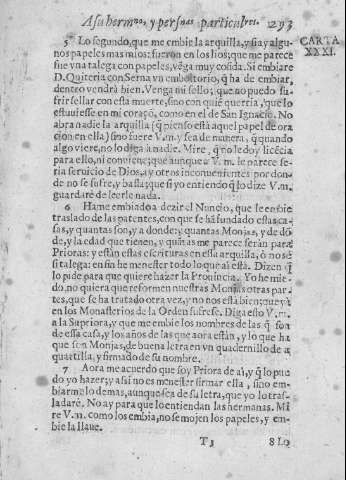 A su hermano, y personas particulares. 293
CARTA
XXXI.
5 Lo segundo, que me embie la arquilla, y si ay algu-
nos papeles mas mios: fueron en los lios; que me parece
fue vna talega con papeles, vẽga muy cosida. Si embiare
D. Quiteria con Serna vn emboltorio, q̃ ha de embiar,
dentro vendrà bien. Venga mi sello; que no puedo su-
frir sellar con esta muerte, sino con quiẽ querria, que lo
estuuiesse en mi coraçõ, como en el de San Ignacio. No
abra nadie la arquilla (q̃ piẽso està aquel papel de ora
cion en ella) sino fuere V.m. y sea de manera, q̃ quando
algo viere, no lo diga à nadie. Mire, q̃ no le doy licẽcia
para ello, ni conuiene; que aunque a V.m. le parece se-
ria seruicio de Dios, ay otros inconuenientes por don-
de no se sufre, y basta; que si yo entiendo q̃ lo dize V.m.
guardarè de leerle nada.
6 Hame embiado a dezir el Nuncio, que le embie
traslado de las patentes, con que se hã fundado estas ca-
sas, y quantas son, y a donde: y quantas Monjas, y de dõ
de, y la edad que tienen, y quãtas me parece seràn para
Prioras: y estàn estas escrituras en esta arquilla, ò no sè
si talega: en fin he menester todo lo que ai està. Dizen q̃
lo pide para que quiere hazer la Prouincia. Yo he mie-
do, no quiera que reformen nuestras Monjas otras par-
tes, que se ha tratado otra vez, y no nos està bien; que ya
en los Monasterios de la Orden sufrese. Diga esso V.m.
a la Supriora, y que me embie los nombres de las q̃ son
de essa casa, y los años de las que aora estàn, y lo que ha
que son Monjas, de buena letra en vn quadernillo de a
quartilla, y firmado de su nombre.
7 Aora me acuerdo que soy Priora de aì, y q̃ lo pue-
do yo hazer; y assi no es menester firmar ella, sino em-
biarme lo demas, aunque sea de su letra, que yo lo tras-
ladarè. No ay para que lo entiendan las hermanas. Mi-
re V.m. como los embia, no se mojen los papeles, y em-
bie la llaue.
T 3 8 Lo